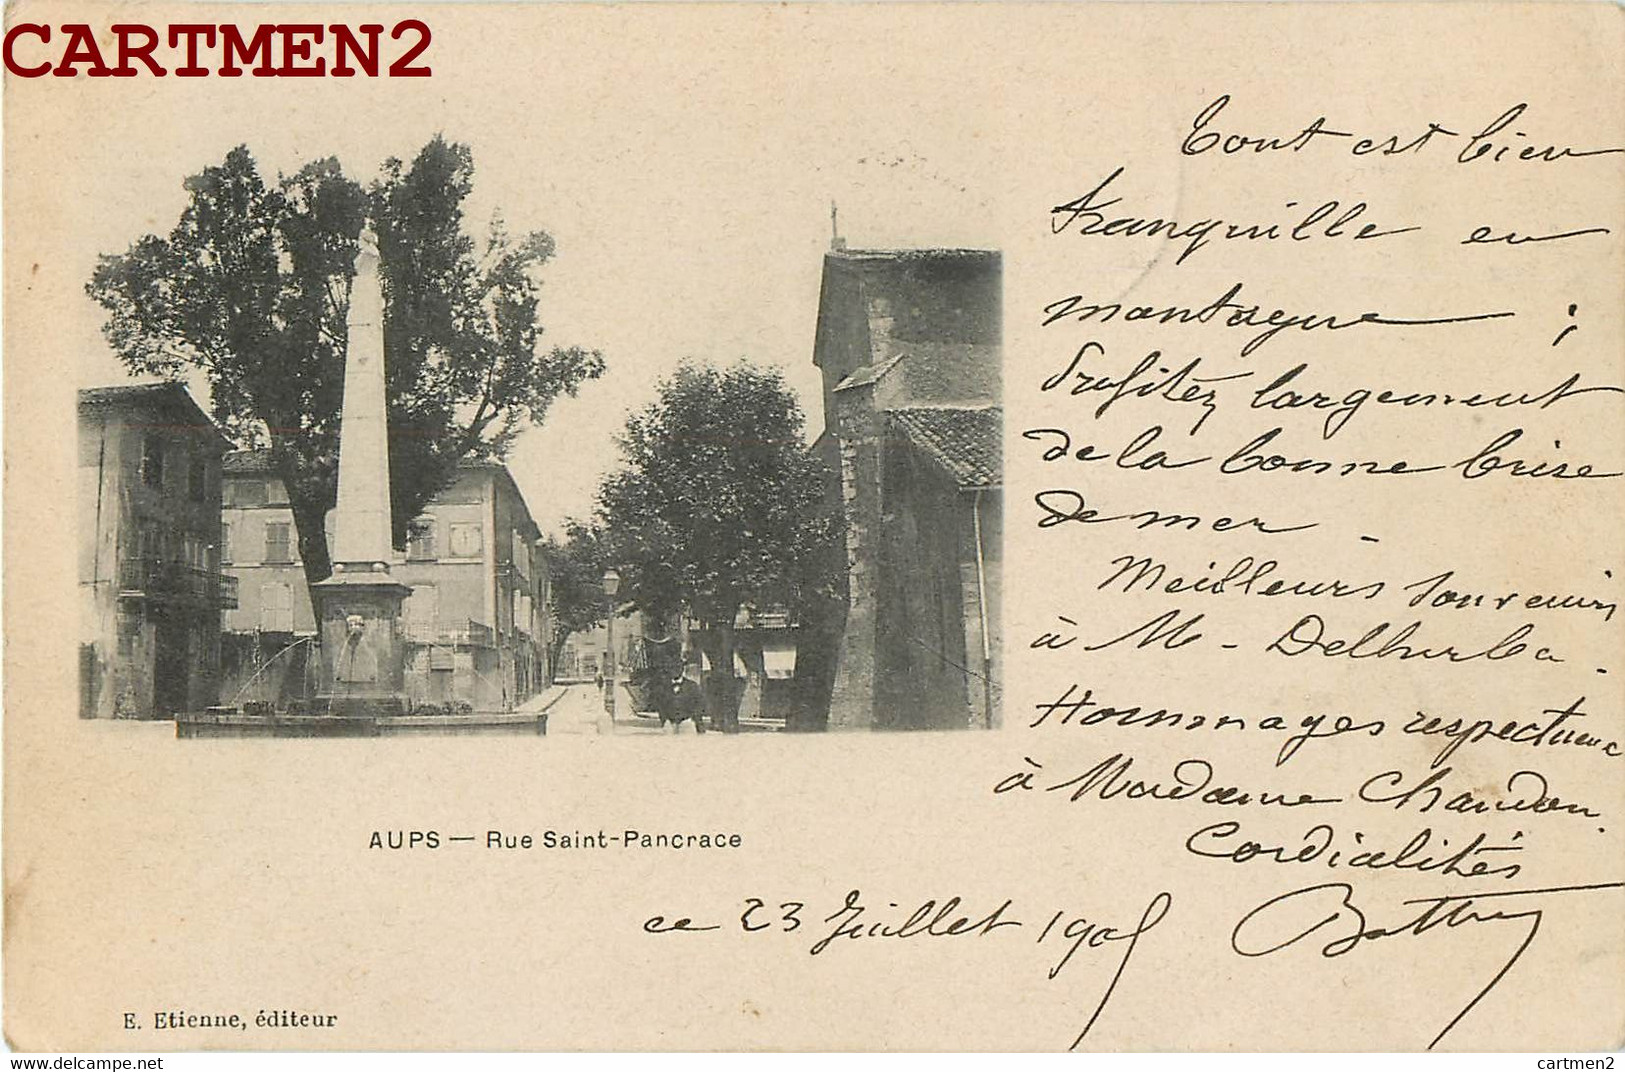 CARTMEN2
Tout est bien
tranquille en
montagne ;
Profitez largement
de la bonne brise
de mer -
Meilleurs souvenirs
à M -
Hommages respectueux
à Madame Chandon.
Cordialités
AUPS — Rue Saint-Pancrace
ce 23 Juillet 1905
E. Etienne, éditeur
cartmen2